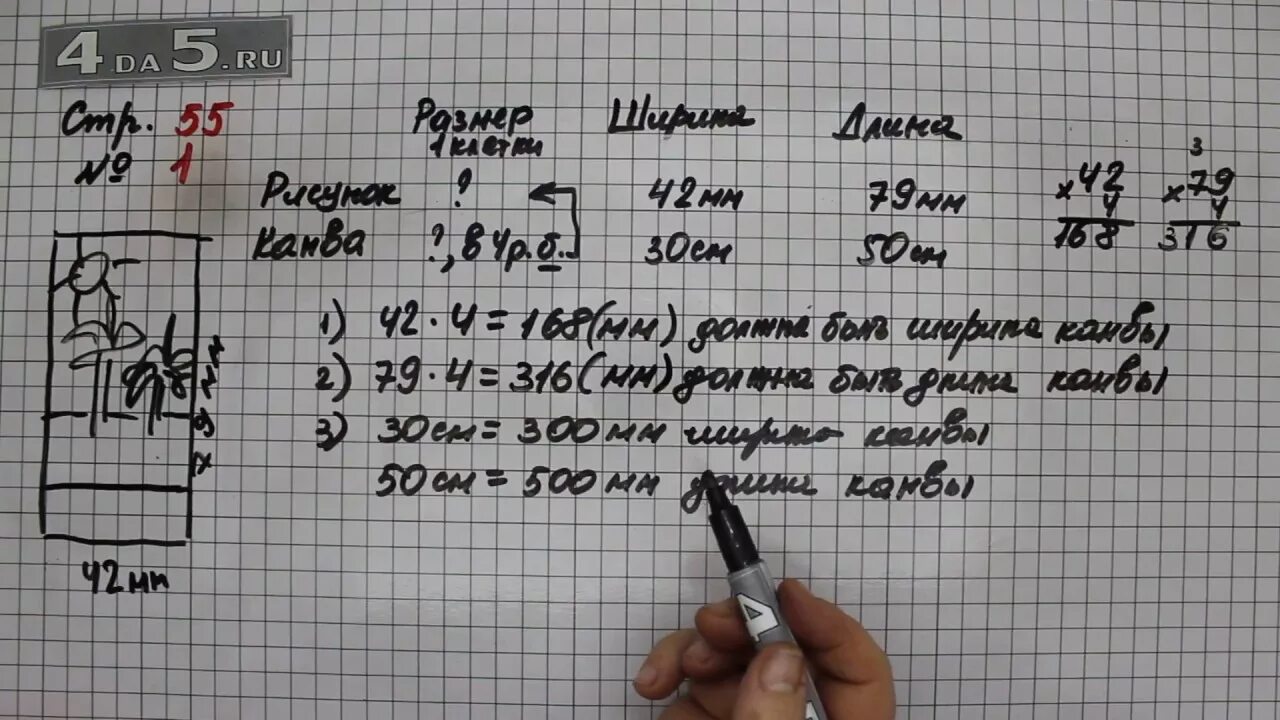 4DA5.RU
Стр. 55
№ 1
Размер 1 клетки Ширина Длина
Рисунок ? 42мм 79мм
Канва ?, в 4р.б. 30см 50см
×42
4
168
3
×79
4
316
1) 42·4=168(мм) должна быть ширина канвы
2) 79·4=316(мм) должна быть длина канвы
3) 30см=300мм ширина канвы
50см=500мм длина канвы
42мм
4